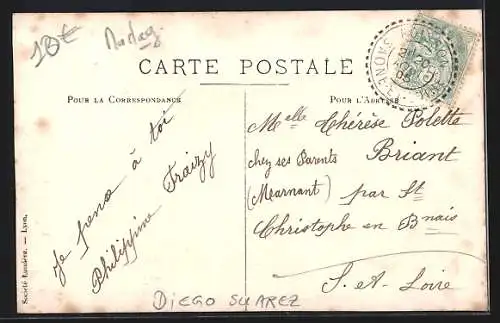 18€
Madag.
CARTE POSTALE
POUR LA CORRESPONDANCE
POUR L'ADRESSE
Je pense à toi
Philippine Fraizy
Melle Thérèse Polette
chez ses Parents Briant
(Mearnant) par St
Christophe en Bnais
S.-et-Loire
Société Lumière. — Lyon.
DIEGO SUAREZ